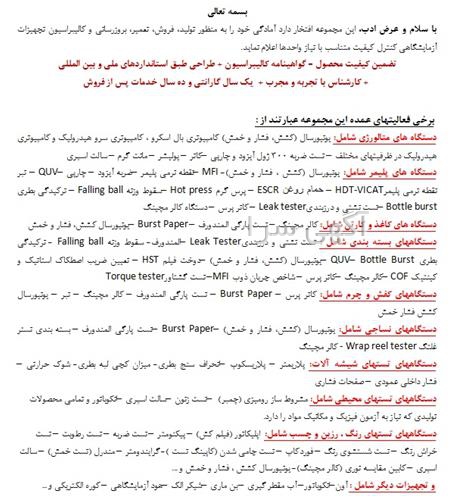 بسمه تعالی
با سلام و عرض ادب، این مجموعه افتخار دارد آمادگی خود را به منظور تولید، فروش، تعمیر، بروزرسانی و کالیبراسیون تجهیزات
آزمایشگاهی کنترل کیفیت متناسب با نیاز واحدها اعلام نماید.
تضمین کیفیت محصول – گواهینامه کالیبراسیون + طراحی طبق استانداردهای ملی و بین المللی
+ کارشناس با تجربه و مجرب + یک سال گارانتی و ده سال خدمات پس از فروش
برخی فعالیتهای عمده این مجموعه عبارتند از :
دستگاه های متالورژی شامل: یونیورسال (کشش، فشار و خمش) کامپیوتری بال اسکرو ، کامپیوتری سرو هیدرولیک و کامپیوتری
هیدرولیک در ظرفیتهای مختلف – تست ضربه ۳۰۰ ژول آیزود و چارپی –کاتر – پولیشر – مانت گرم – سالت اسپری
دستگاه های پلیمر شامل: یونیورسال (کشش ، فشار و خمش)- MFI –نقطه نرمی پلیمر –ضربه آیزود – چارپی –QUV– تبر
نقطه نرمی پلیمر HDT-VICAT– حمام روغن ESCR – پرس گرم Hot press –سقوط وزنه Falling ball – ترکیدگی بطری
Bottle burst –تست نشتی و درزبندی Leak tester –کاتر پرس – دستگاه کالر مچینگ
دستگاه های کاغذ و کارتن شامل: کالر مچینگ – تست پارگی المندورف – Burst Paper –یونیورسال کشش، فشار و خمش
دستگاههای بسته بندی شامل: تست نشتی و درزبندی Leak Tester –المندورف- سقوط وزنه Falling ball - ترکیدگی
بطری QUV – Bottle Burst –یونیورسال (کشش، فشار و خمش) –دوخت فیلم HST – تعیین ضریب اصطکاک استاتیک و
کینتیک COF –کالر مچینگ –کاتر پرس – شاخص جریان ذوب MFI–تست گشتاور Torque tester
دستگاههای کفش و چرم شامل: کاتر پرس – Burst Paper – تست پارگی المندورف – کالر مچینگ – تبر – یونیورسال
کشش فشار خمش
دستگاههای نساجی شامل: یونیورسال (کشش، فشار و خمش) –Burst Paper –تست پارگی المندورف – بسته بندی تستر
غلتگ Wrap reel tester - کالر مچینگ
دستگاههای تستهای شیشه آلات: پلاریمتر – پلاریسکوپ –انحراف سنج بطری- میزان کچی لبه بطری- شوک حرارتی –
فشار داخلی عمودی – صفحات فشاری
دستگاههای تستهای محیطی شامل: مشروط ساز رومیزی (چمبر) –تست زتون –سالت اسپری –انکوباتور و تمامی محصولات
تولیدی که نیاز به آزمون فیزیک و مکانیک مواد را دارد.
دستگاههای تستهای رنگ ، رزین و چسب شامل: اپلیکاتور (فیلم کش) – پیکنومتر – تست ضربه – تست رطوبت – تست
خراش رنگ – تست شستشوی رنگ – فوردکاپ – تست چامی شدن (کاپینگ تست) –گرایندومتر – مندرل (تست خمش) –سالت
اسپری –کابین مقایسه نوری (کالرمچینگ)-یونیورسال کشش ، فشار ، خمش و ...
و تجهیزات دیگر شامل : آون-انکوباتور-آب مقطر گیری –بن ماری –شیکر الک –هود آزمایشگاهی –کوره الکتریکی و...